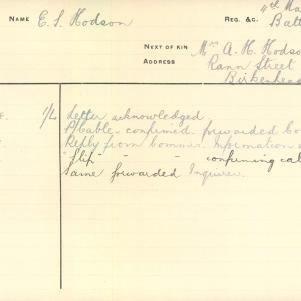 4th Ma
NAME E. S. Hodson REG. &C. Batt
NEXT OF KIN Mrs A. H. Hodso
ADDRESS Rann Street
Birkenhea
F. Letter acknowledged
P/Cable - confirmed. forwarded Co
Reply from Commr. Information
"Slip" - - confirming cab
Same forwarded Inquirer.